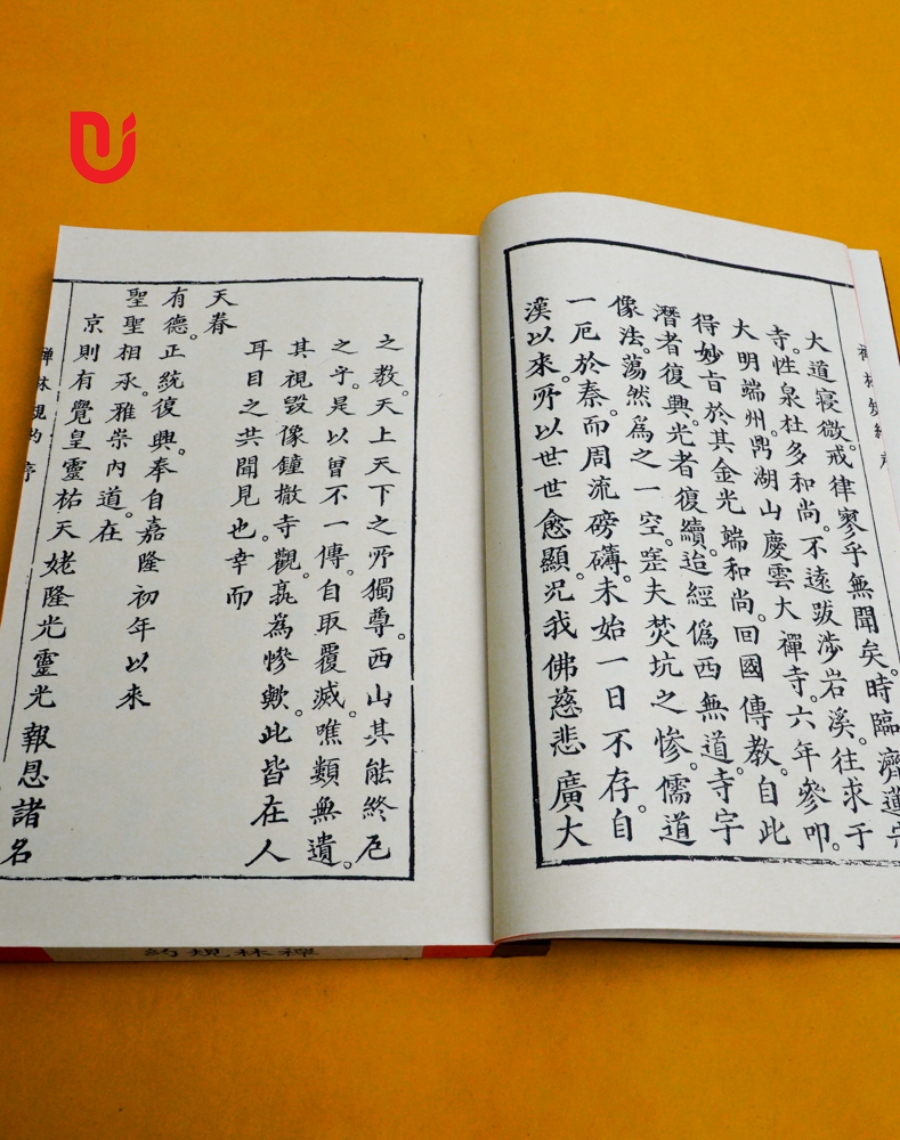 大道寢微。戒律寥乎無聞矣。時臨濟蓮宗
寺。性泉杜多和尚。不遠跋涉岩溪。往求于
大明端州。鼎湖山慶雲大禪寺。六年參叩。
得妙旨於其金光端和尚。回國傳教。自此
潛者復興。光者復續。迨經僞西無道。寺宇
像法。蕩然爲之一空。嗟夫焚坑之慘。儒道
一厄於秦。而周流磅礴。未始一日不存。自
漢以來。所以世世愈顯。况我佛慈悲廣大
之教。天上天下之所獨尊。西山其能終厄
之乎。是以曾不一傳。自取覆滅。噍類無遺。
其視毀像鐘撤寺觀。孰爲慘歟。此皆在人
耳目之共聞見也。幸而
天眷
有德。正統復興。奉自嘉隆初年以来
聖聖相承。雅崇內道。在
京則有覺皇靈祐天姥隆光靈光報恩諸名
禪林規約 序
約規林禪